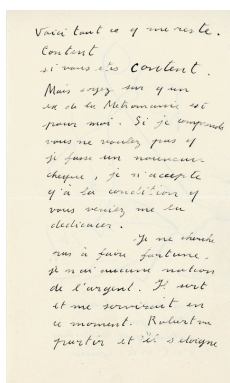 Voici tout ce q me reste.
Content
si vous êtes content.
Mais soyez sur q un
ex de la Metromanie est
pour moi. Si je comprends
vous ne voulez pas q
je fasse un nouveau
cheque, je n'accepte
q'à la condition q
vous veniez me la
dedicacer.
Je ne cherche
pas à faire fortune.
je n'ai aucune notion
de l'argent. Il sert
et me servirait en
ce moment. Robert va
partir et il s eloigne